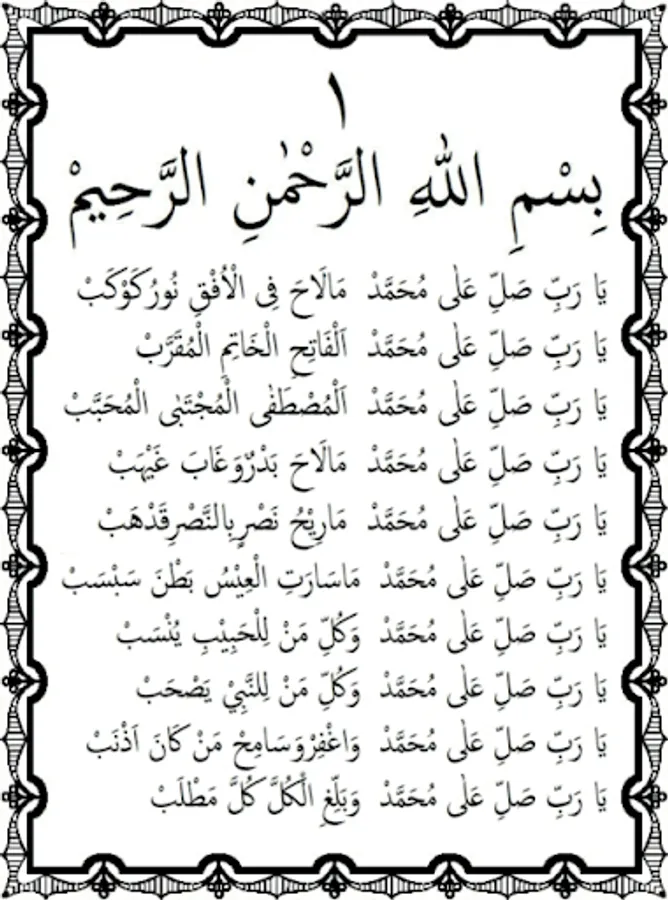 ١
بِسْمِ اللهِ الرَّحْمٰنِ الرَّحِيمْ
يَا رَبِّ صَلِّ عَلٰى مُحَمَّدْ مَالَاحَ فِى الْاُفْقِ نُورُكَوْكَبْ
يَا رَبِّ صَلِّ عَلٰى مُحَمَّدْ اَلْفَاتِحِ الْخَاتِمِ الْمُقَرَّبْ
يَا رَبِّ صَلِّ عَلٰى مُحَمَّدْ اَلْمُصْطَفٰى الْمُجْتَبٰى الْمُحَبَّبْ
يَا رَبِّ صَلِّ عَلٰى مُحَمَّدْ مَالَاحَ بَدْرٌوَغَابَ غَيْهَبْ
يَا رَبِّ صَلِّ عَلٰى مُحَمَّدْ مَارِيْحُ نَصْرٍبِالنَّصْرِقَدْهَبْ
يَا رَبِّ صَلِّ عَلٰى مُحَمَّدْ مَاسَارَتِ الْعِيْسُ بَطْنَ سَبْسَبْ
يَا رَبِّ صَلِّ عَلٰى مُحَمَّدْ وَكُلِّ مَنْ لِلْحَبِيْبِ يُنْسَبْ
يَا رَبِّ صَلِّ عَلٰى مُحَمَّدْ وَكُلِّ مَنْ لِلنَّبِيْ يَصْحَبْ
يَا رَبِّ صَلِّ عَلٰى مُحَمَّدْ وَاغْفِرْوَسَامِحْ مَنْ كَانَ اَذْنَبْ
يَا رَبِّ صَلِّ عَلٰى مُحَمَّدْ وَبَلِّغِ الْكُلَّ كُلَّ مَطْلَبْ